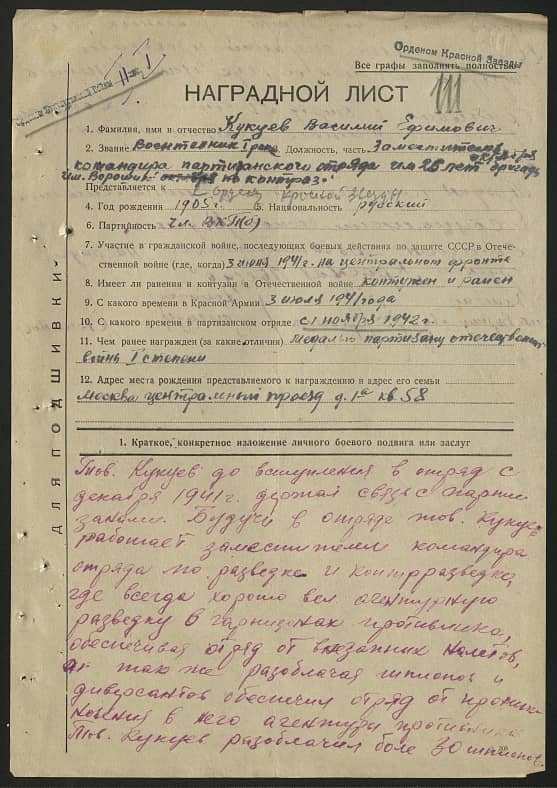 Орденом Красной Звезды
Все графы заполнять полностью
111
НАГРАДНОЙ ЛИСТ
1. Фамилия, имя и отчество Кукуев Василий Ефимович
2. Звание Воентехник I ранга 3. Должность, часть Заместитель
командира партизанского отряда им. 25 лет октября бригады
им. Ворошил
Представляется к Ордену Красной Звезды
4. Год рождения 1905 г. 5. Национальность русский
6. Партийность чл. ВКП(б)
7. Участие в гражданской войне, последующих боевых действиях по защите СССР в Отече-
ственной войне (где, когда) 3 июля 1941 г. на центральном фронте
8. Имеет ли ранения и контузии в Отечественной войне контужен и ранен
9. С какого времени в Красной Армии 3 июля 1941 года
10. С какого времени в партизанском отряде с 1 ноября 1942 г.
11. Чем ранее награжден (за какие отличия) Медалью партизану отечественной
войны I степени
12. Адрес места рождения представляемого к награждению и адрес его семьи
Москва центральный проезд д. 1а кв. 58
ДЛЯ ПОДШИВКИ
1. Краткое, конкретное изложение личного боевого подвига или заслуг
Тов. Кукуев до вступления в отряд с
декабря 1941 г. держал связь с парти
занами. Будучи в отряде тов. Кукуев
работает заместителем командира
отряда по разведке и контрразведке,
где всегда хорошо вел агентурную
разведку в гарнизонах противника,
обеспечивая отряд от внезапных налетов,
а так же разоблачая шпионов и
диверсантов обеспечил отряд от проник
новения в него агентуры противника
Тов. Кукуев разоблачил боле 30 шпионов.